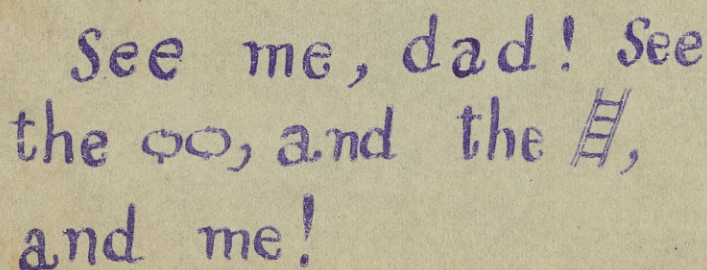 See me, dad! See
the , and the ,
and me!